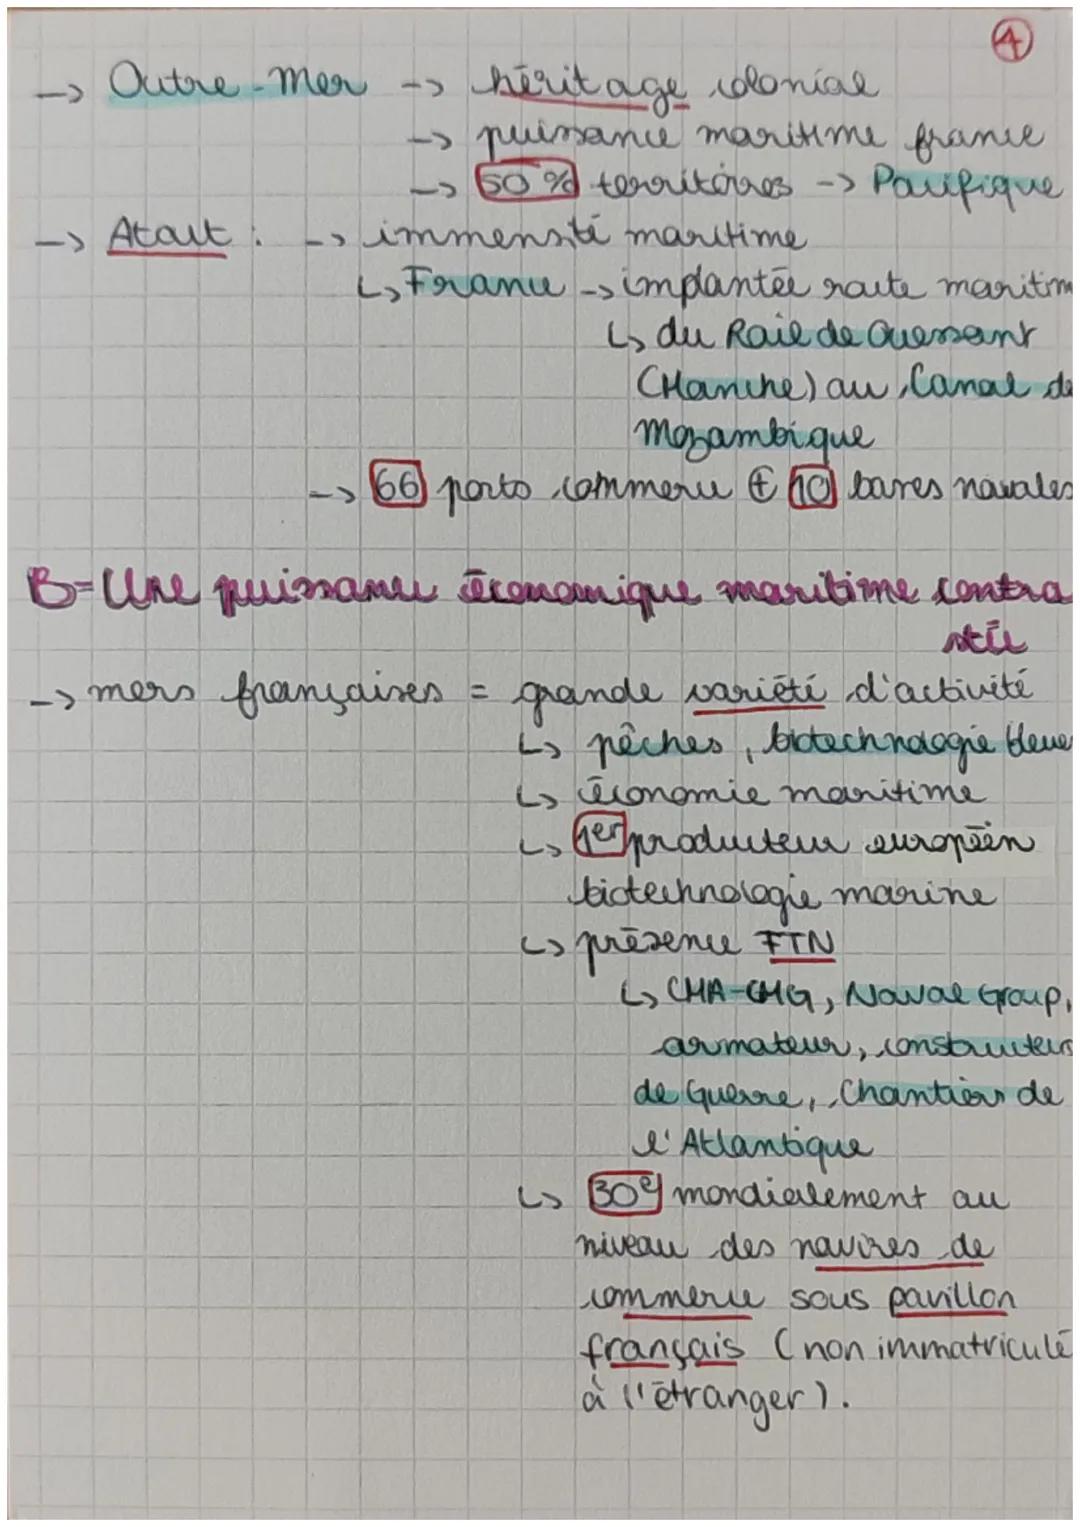 4
-> Outre-Mer -> héritage colonial
-> puissance maritime france
-> 50% territoires -> Pacifique
-> Atout : -> immensité maritime
↳ France -> implantée route maritim
↳ du Rail de Ouessant
(Manche) au Canal de
Mozambique
-> 66 ports commerce + 10 bases navales
B- Une puissance économique maritime contra
stée
-> mers françaises = grande variété d'activité
↳ pêches, biotechnologie bleue
↳ économie maritime
↳ 1er producteur européen
biotechnologie marine
↳ présence FTN
↳ CMA-CMG, Naval Group,
armateur, constructeurs
de Guerre, Chantiers de
l'Atlantique
↳ 30e mondialement au
niveau des navires de
commerce sous pavillon
français (non immatriculé
à l'étranger).